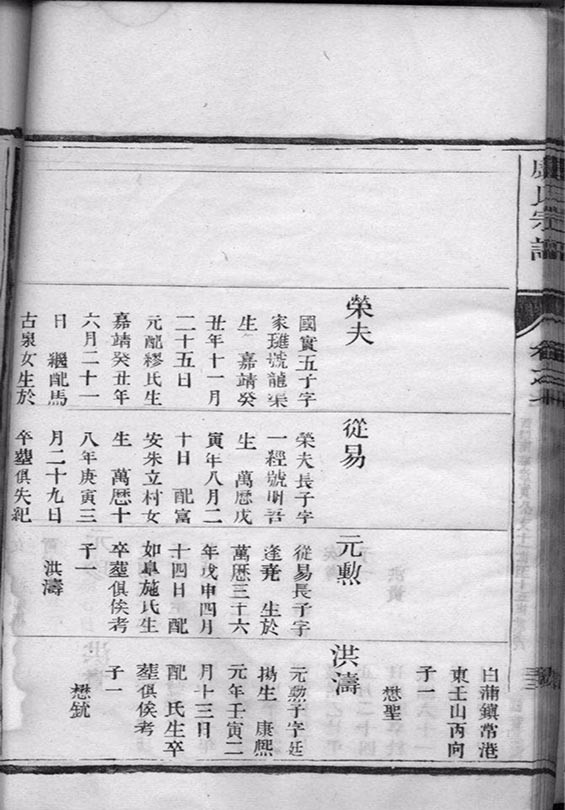 氏宗譜
卷之
榮夫
國實五子字
家璡號龍渠
生 嘉靖癸
丑年十一月
二十五日
元配繆氏生
嘉靖癸丑年
六月二十一
日 繼配馬
古泉女生於
從易
榮夫長子字
一經號明吾
生 萬曆戊
寅年八月二
十日 配富
安朱立村女
生 萬曆十
八年庚寅三
月二十九日
卒塟俱失紀
元勲
從易長子字
逢堯 生於
萬曆三十六
年戊申四月
十四日 配
如臯施氏生
卒塟俱俟考
子一
洪濤
白蒲鎮常港
東王山丙向
子一
懋聖
洪濤
元勲子字廷
揚生 康熙
元年壬寅二
月十三月
配 氏生卒
塟俱俟考
子一
懋銃